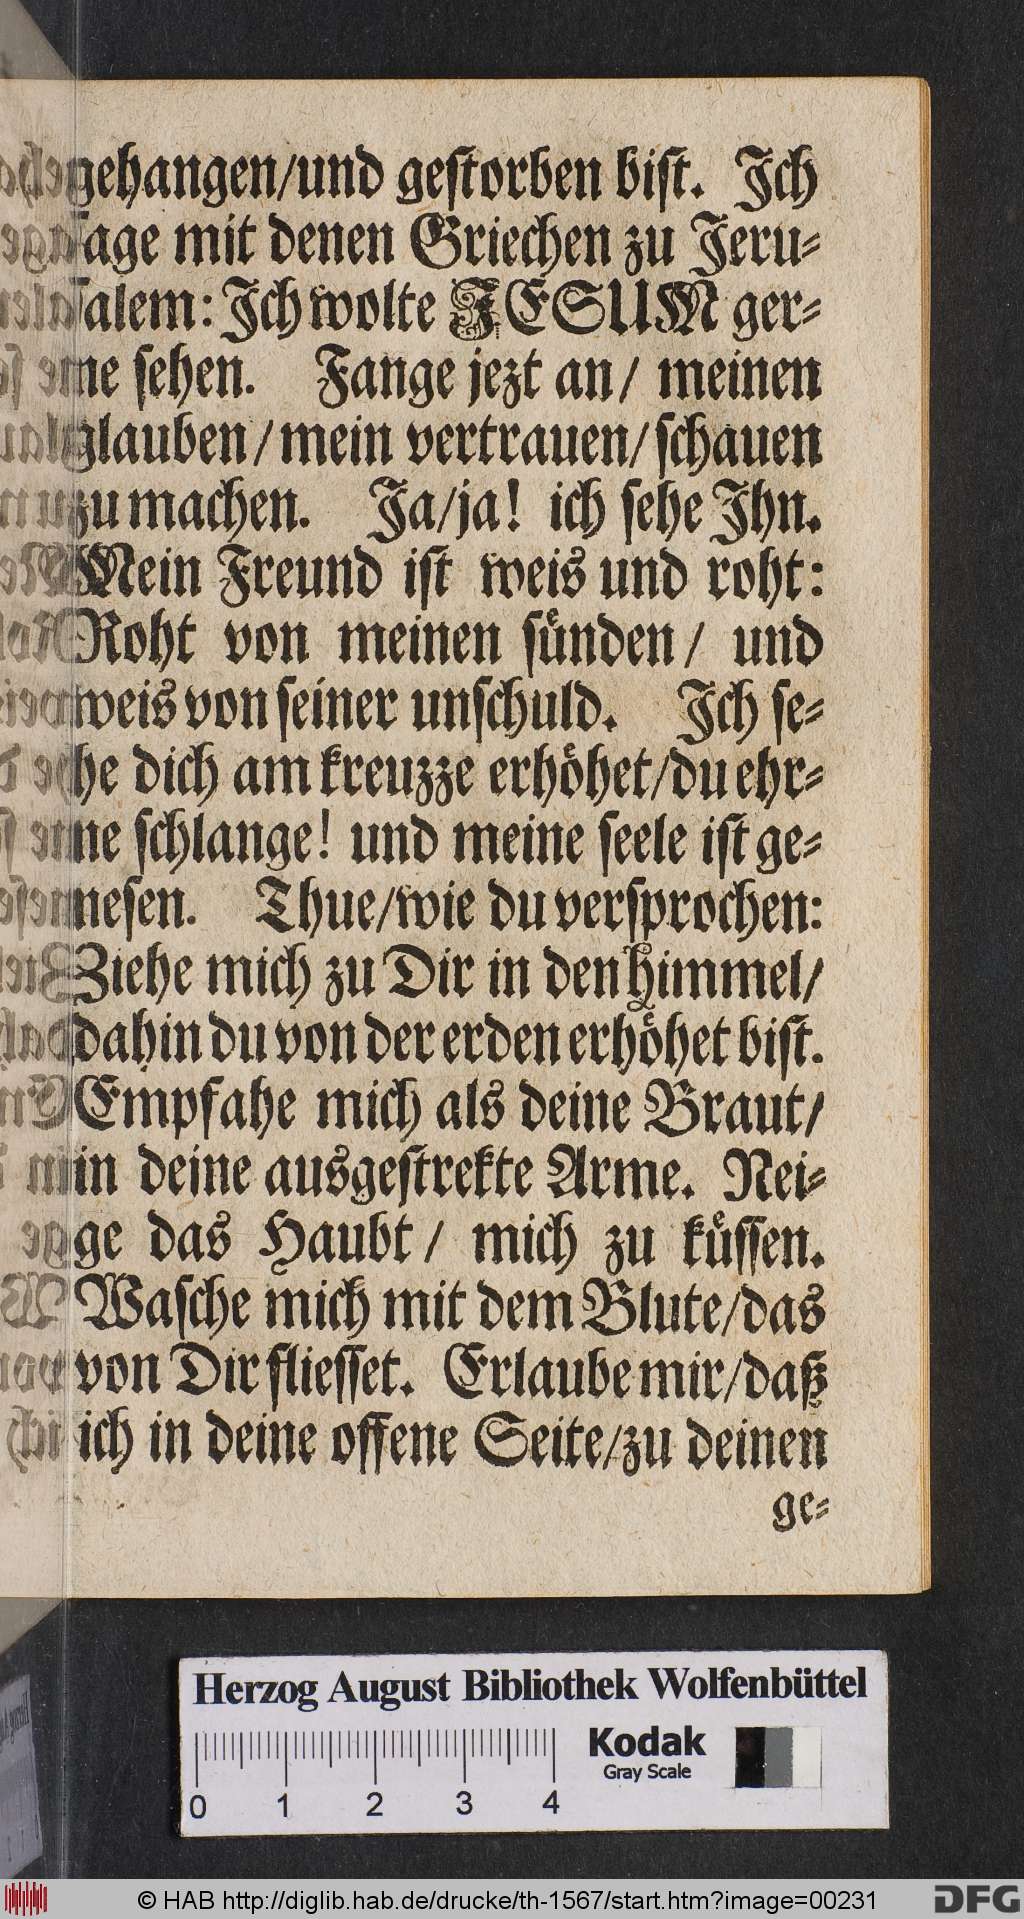 gehangen/und gestorben bist. Ich
sage mit denen Griechen zu Jeru⸗
salem: Ich wolte JESUM ger⸗
ne sehen. Fange jezt an/ meinen
glauben/mein vertrauen/schauen
zu machen. Ja/ja! ich sehe Ihn.
Mein Freund ist weis und roht:
Roht von meinen suͤnden/ und
weis von seiner unschuld. Ich se⸗
he dich am kreuzze erhoͤhet/du ehr⸗
ne schlange! und meine seele ist ge⸗
nesen. Thue/wie du versprochen:
Ziehe mich zu Dir in den Himmel/
dahin du von der erden erhoͤhet bist.
Empfahe mich als deine Braut/
in deine ausgestrekte Arme. Nei⸗
ge das Haubt/ mich zu kuͤssen.
Wasche mich mit dem Blute/das
von Dir fliesset. Erlaube mir/daß
ich in deine offene Seite/zu deinen
ge⸗
Herzog August Bibliothek Wolfenbüttel
Kodak
Gray Scale
0 1 2 3 4
© HAB http://diglib.hab.de/drucke/th-1567/start.htm?image=00231
DFG